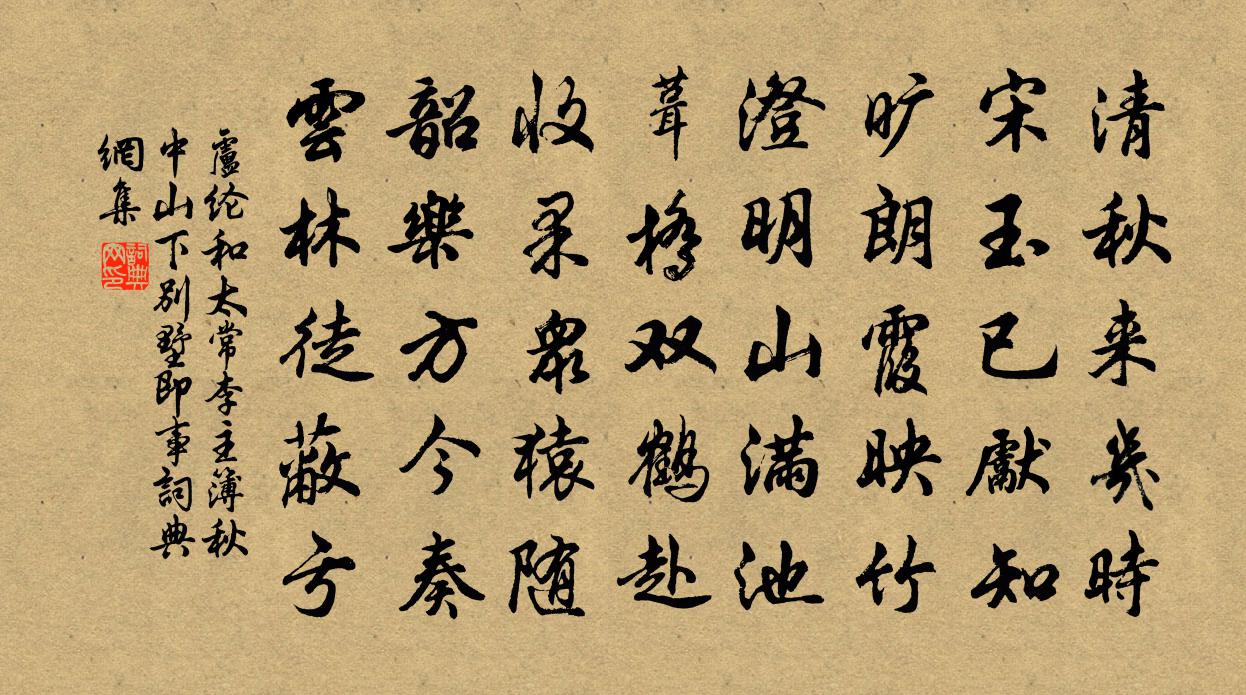 清秋来幾時
宋玉已獻知
旷朗霞映竹
澄明山满池
葺橋双鶴赴
收果眾猿随
韶樂方今奏
雲林徒蔽亏
盧纶和太常李主簿秋
中山下别墅即事詞典
網集
詞典網印